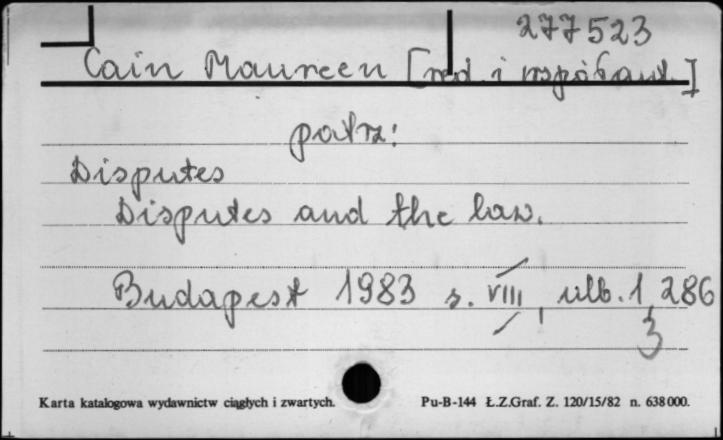 277523
Cain Maureen [red. i współaut.]
patrz:
Disputes
Disputes and the law.
Budapest 1983 s. VIII, ulb. 1, 286
3
Karta katalogowa wydawnictw ciągłych i zwartych. Pu-B-144 Ł.Z.Graf. Z. 120/15/82 n. 638000.